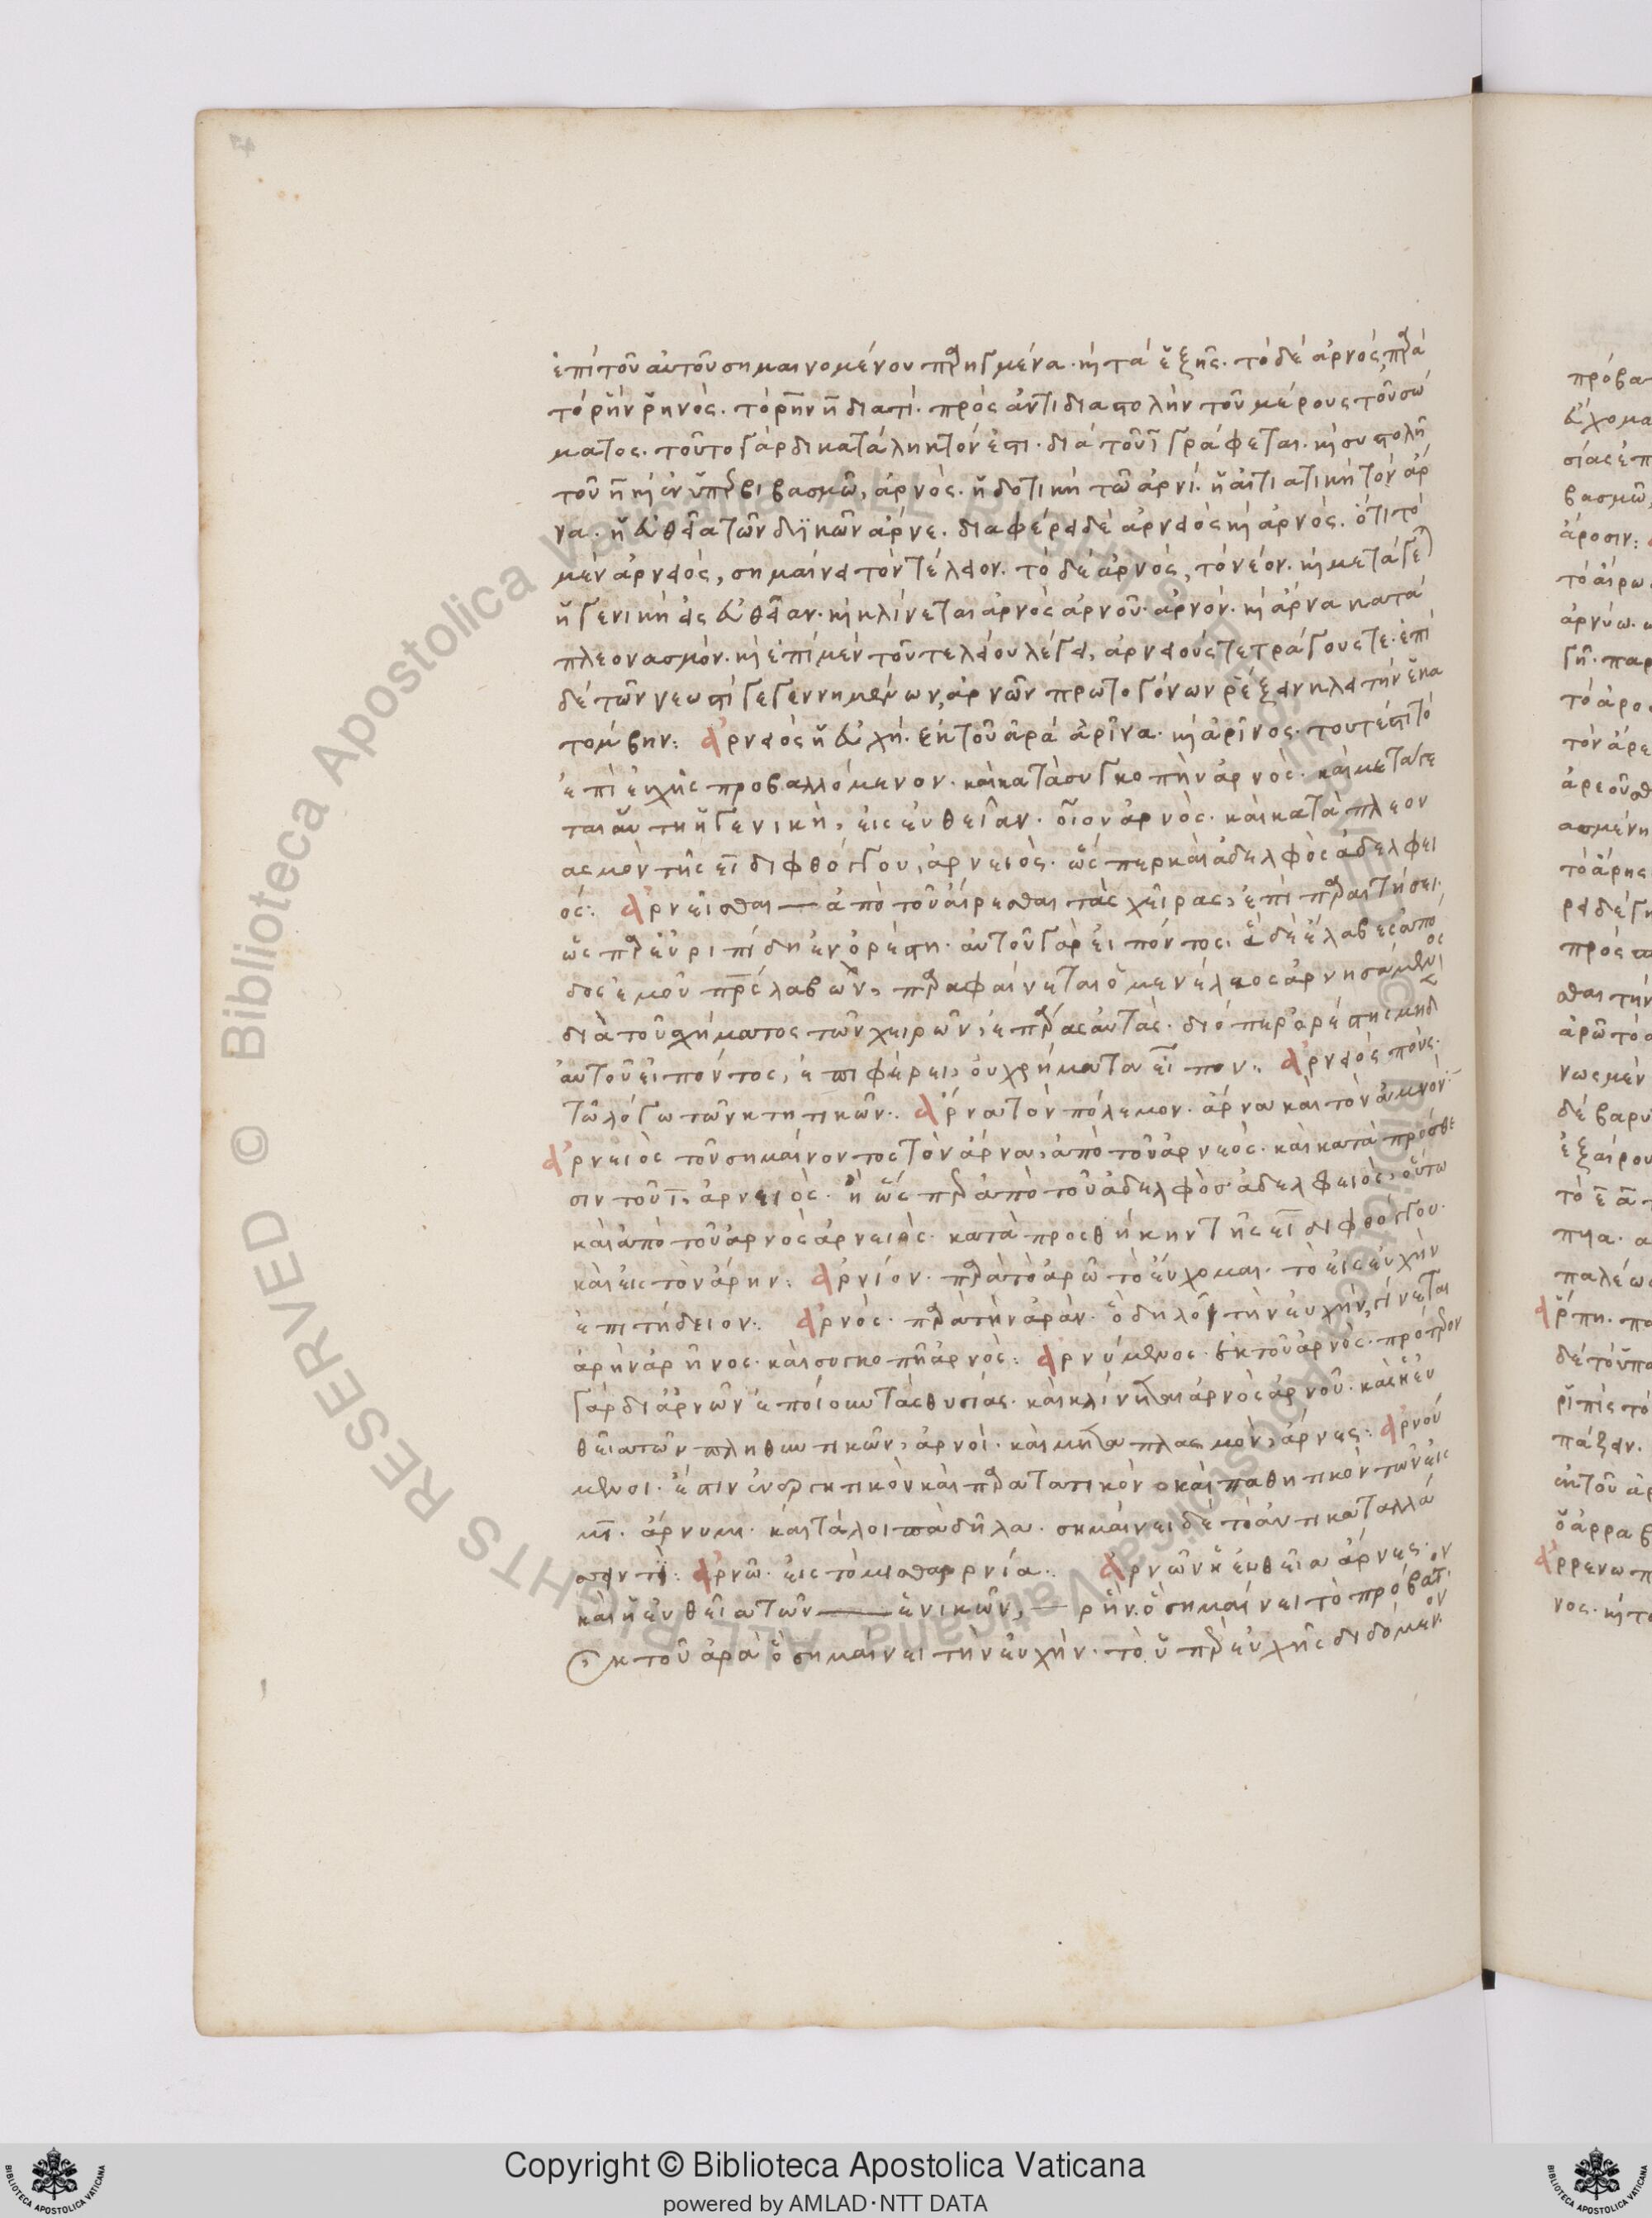 ἐπὶ τοῦ αὐτοῦ σημαινομένου παρηγμένα. καὶ τὰ ἑξῆς. τὸ δὲ ἀρνός, παρὰ
τὸ ῥὴν ῥηνός. τὸ ρην η διατί. πρὸς ἀντιδιαστολὴν τοῦ μέρους τοῦ σώ
ματος. τοῦτο γὰρ δικατάληκτόν ἐστι. διὰ τοῦ ι γράφεται. καὶ συστολῆ
τοῦ η καὶ ἐν ὑπερβιβασμῶ, ἀρνός. ἡ δοτικὴ τῶ ἀρνί. ἡ αἰτιατικὴ τὸν ἄρ
να. ἡ εὐθεῖα τῶν δϊκῶν ἄρνε. διαφέρει δὲ ἀρνειὸς καὶ ἀρνός. ὅτι τὸ
μὲν ἀρνειός, σημαίνει τὸν τέλειον. τὸ δὲ ἀρνός, τὸ νέον. καὶ μετάγε
ἡ γενικὴ εἰς εὐθεῖαν. καὶ κλίνεται ἀρνὸς ἀρνοῦ. ἀρνόν. καὶ ἄρνα κατὰ
πλεονασμόν. καὶ ἐπὶ μὲν τοῦ τελείου λέγει, ἀρνειούς τε τράγους τε. ἐπὶ
δὲ τῶν νεωστὶ γεγεννημένων, ἀρνῶν πρωτογόνων ῥέξειν κλειτὴν ἑκα
τόμβην: ἀρνειὸς ἡ εὐχή. ἐκ τοῦ ἀρά ἀρῖνα. καὶ ἀρῖνος. τουτέστι τὸ
ἐπὶ εὐχῆς προβαλλόμενον. καὶ κατὰ συγκοπὴν ἀρνός. καὶ μετάγε
ται αὐτη ἡ γενικὴ, εἰς εὐθεῖαν. οἷον ἀρνός. καὶ κατὰ πλεον
ασμὸν τῆς ει διφθόγγου, ἀρνειός. ὥσπερ καὶ ἀδελφὸς ἀδελφει
ός: ἀρνεῖσθαι — ἀπὸ τοῦ αἴρεσθαι τὰς χεῖρας, ἐπὶ παραιτήσει.
ὡς παρ εὐριπίδη ἐν ὀρέστη. αὐτοῦ γὰρ εἰπόντος. ἃ δὲ ἔλαβες ἀπό
δος ἐμοῦ πρς λαβὼν, παραφαίνεται ὁ μενέλαος ἀρνησάμενος
διὰ τοῦ σχήματος τῶν χειρῶν, ἐπάρας αὐτάς. διόπερ ὀρέστης μηδ
αὐτοῦ εἰπόντος, ἐπιφέρει, οὐ χρήματα εἶπον: ἀρνειὸς πόνς.
τῶ λόγω τῶν κτητικῶν: ἄρνα τὸν πόλεμον. ἄρνα καὶ τὸν ἀμνόν:
ἀρνειὸς τοῦ σημαίνοντος τὸν ἄρνα, ἀπὸ τοῦ ἀρνεός. καὶ κατὰ πρόσθε
σιν τοῦ ι, ἀρνειός. ἢ ὥσπερ ἀπὸ τοῦ ἀδελφὸσ ἀδελφειός, οὕτω
καὶ ἀπὸ τοῦ ἀρνὸς ἀρνειός. κατὰ προσθήκην τῆς ει διφθόγγου.
καὶ εἰς τὸν ἄρην: ἀρνίον. παρὰ τὸ ἀρῶ τὸ εὔχομαι. τὸ εἰς εὐχὴν
ἐπιτήδειον: ἀρνός. παρὰ τὴν ἀράν. ὃ δηλοῖ τὴν εὐχὴν, γίνεται
ἀρὴν ἀρῆνος. καὶ συγκοπῆ ἀρνός: ἀρνύμενος. ἐκ τοῦ ἀρνός. πρότερον
γὰρ δι ἀρνῶν ἐποίουν τὰς θυσίας. καὶ κλίνεται ἀρνὸς ἀρνοῦ. καὶ ἡ εὐ
θεῖα τῶν πληθυντικῶν, ἀρνοί. καὶ μεταπλασμὸν, ἄρνες: ἀρνού
μενοι. ἐστὶν ἐνεργητικὸν καὶ παρατατικὸν καὶ παθητικὸν τῶν εἰς
μι. ἄρνυμι. καὶ τὰ λοιπὰ δῆλα. σημαίνει δὲ τὸ ἀντικαταλλά
: ἀρνῶ. εἰς τὸ μισθαρνία: ἀρνῶν ἡ εὐθεῖα ἄρνες.
καὶ ἡ εὐθεῖα τῶν — ἑνικῶν, — ρὴν. ὃ σημαίνει τὸ πρόβατον
ἐκ τοῦ ἀρὰ ὃ σημαίνει τὴν εὐχήν. τὸ ὑπὲρ εὐχῆς διδόμενον.
Copyright © Biblioteca Apostolica Vaticana
powered by AMLAD·NTT DATA